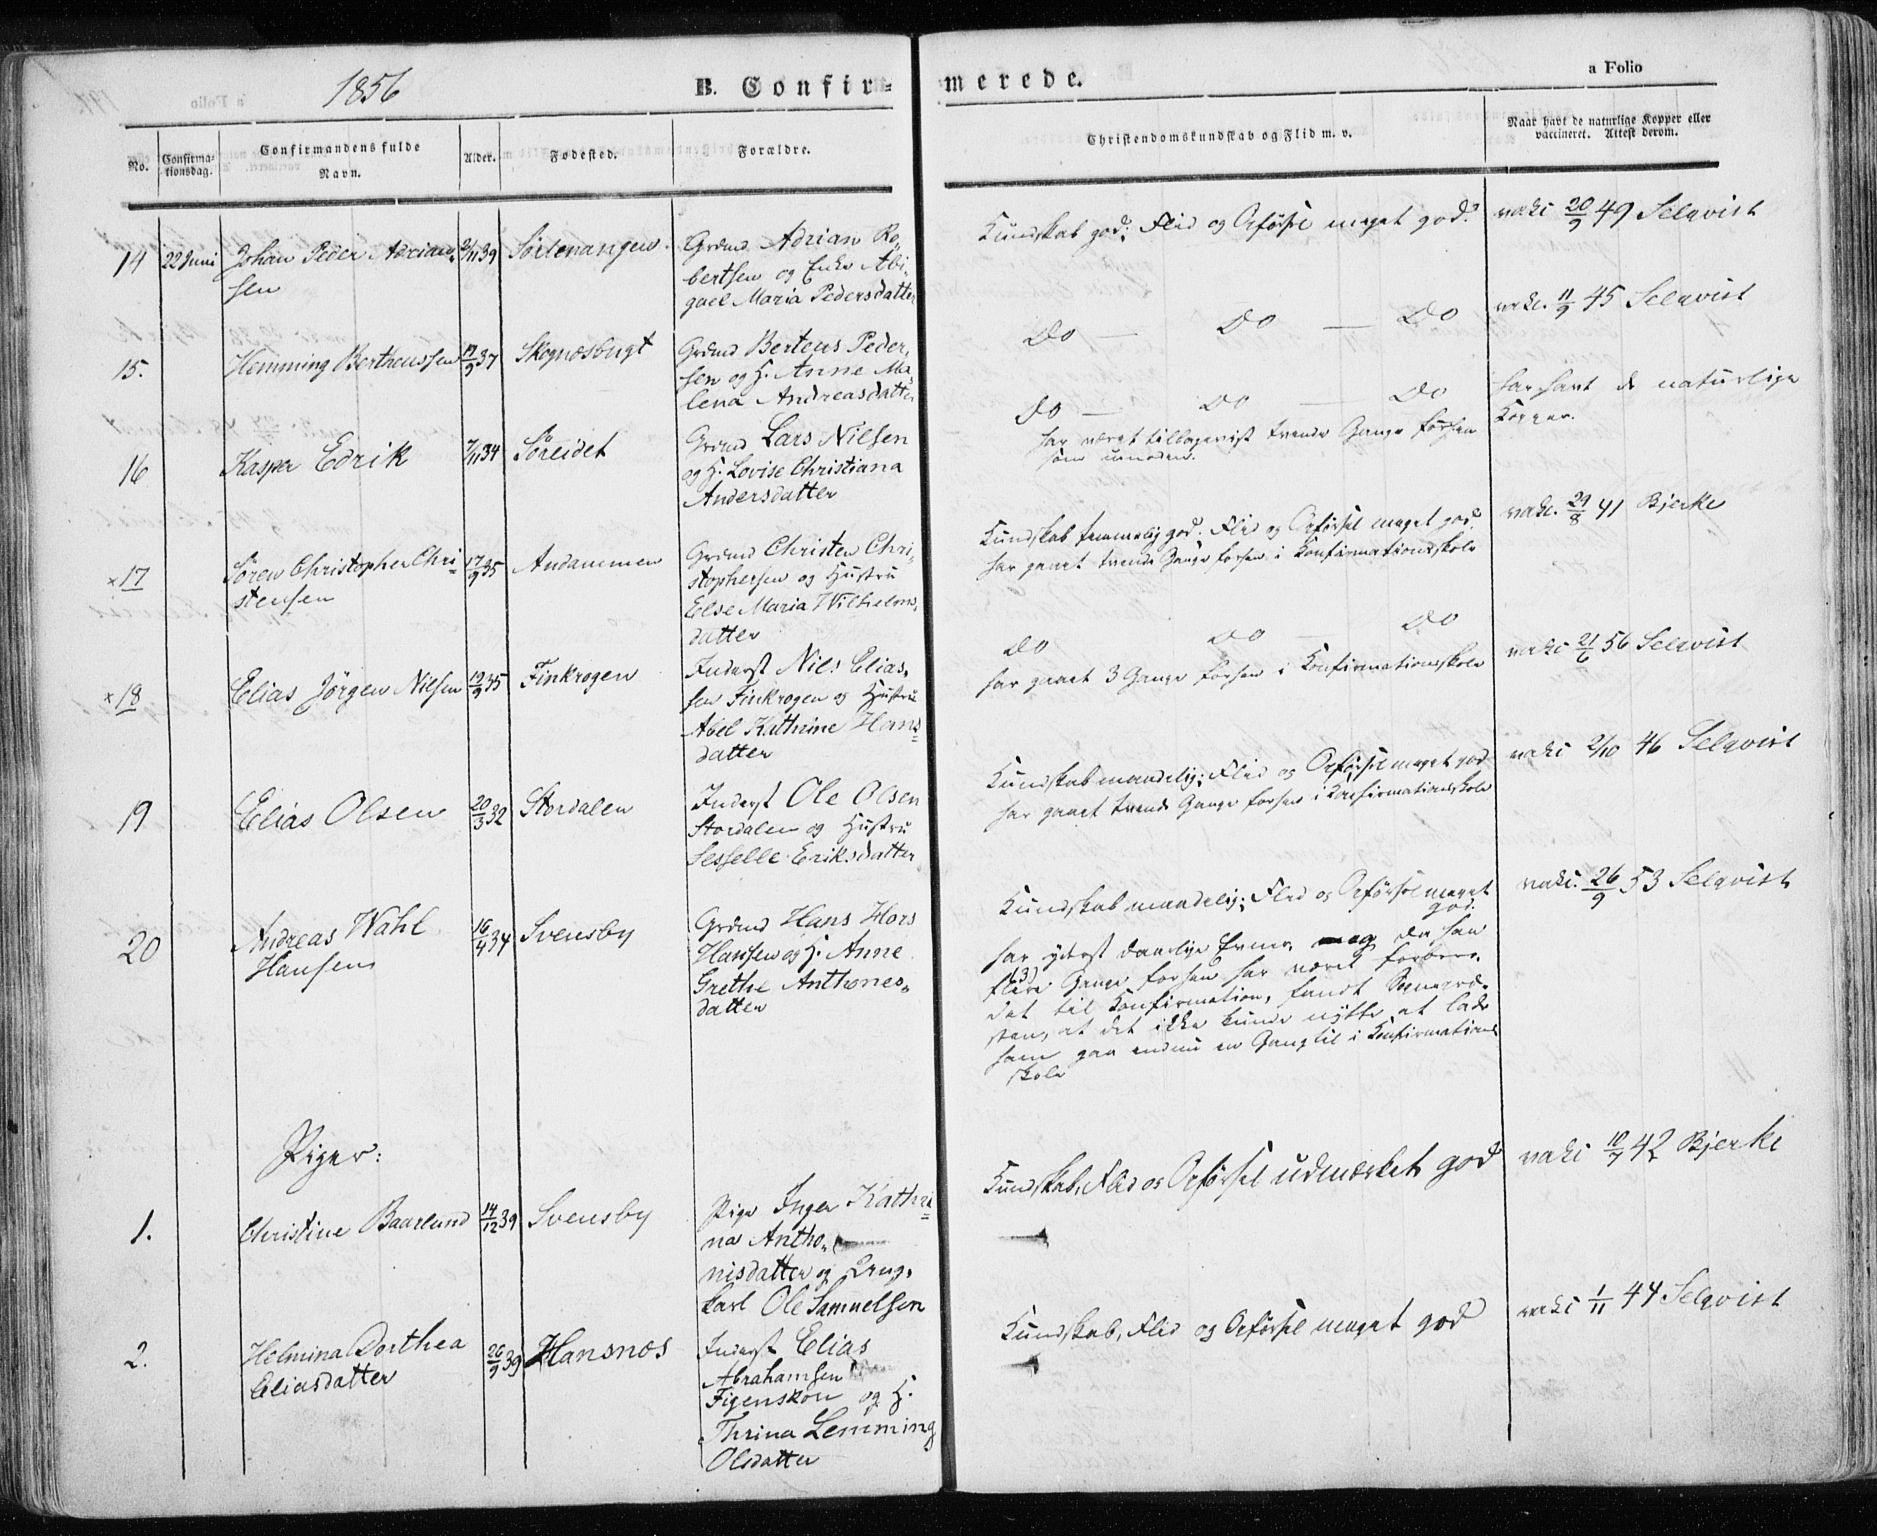 1856
B. Confir-
merede.
a Folio
No.
Confirma-
tionsdag.
Confirmandens fulde
Navn.
Alder.
Fødested.
Forældre.
Christendomskundskab og Flid m. v.
Naar havt de naturlige Kopper eller
vaccineret. Attest derom.
14 22 Juni Johan Peder Adrian- 2/11 39 Sörlenangen Grdmd Adrian Ro-
sen bertsen og Enke Abi-
gael Maria Pedersdatter
Kundskab god; Flid og Opførsel meget god. vakc 20/9 49 Selqvist
15. Hemming Bertheussen 19/9 37 Skognæsbugt Grdmd Berteus Peder-
sen og H. Anne Ma-
lena Andreasdatter
Do — Do — Do vakc. 11/9 45 Selqvist
16 Kasper Edrik 7/11 34 Söreidet Grdmd Lars Nilsen
og H. Lovise Christiana
Andersdatter
Do — Do — Do har havt de naturlige
har været tilbageviist trende Gange forhen Kopper.
som umoden.
×17 Sören Christopher Chri- 17/9 35 Andammen Grdmd Christen Chri-
stensen stophersen og Hustru
Else Maria Wilhelms-
datter
Kundskab temmelig god. Flid og Opførsel meget god. vakc. 29/8 41 Bjerke
har gaaet trende Gange forhen i Konfirmationsskole
×18 Elias Jörgen Nilsen 19/9 35 Finkrogen Inderst Nils Elias-
sen Finkrogen og Hustru
Abel Kathrine Hans-
datter
Do Do — Do vakc 21/6 56 Selqvist
har gaaet 3 Gange forhen i Konfirmationsskole
19 Elias Olsen 20/3 32 Stordalen Inderst Ole Olsen
Stordalen og Hustru
Sesselle Eriksdatter
Kundskab maadelig; Flid og Opførsel meget god vakc 2/10 46 Selqvist
har gaaet trende Gange forhen i Konfirmationsskole
20 Andreas Wahl 16/4 34 Svensby Grdmd Hans Hors
Hansen Hansen og H. Anne
Grethe Anthones-
datter
Kundskab maadelig; Flid og Opførsel meget vakc. 26/9 53 Selqvist
god.
har yderst daarlige Evner, da han
flere (3) Gange forhen har været forbere-
det til Konfirmation, fandt Sognepræ-
sten, at det ikke kunde nytte at lade
ham gaa endnu en Gang til i Konfirmations
skole
Piger:
1. Christine Baarlund 14/12 39 Svensby Pige Inger Kathri-
na Antho-
nisdatter og Ung-
karl Ole Samuelsen
Kundskab, Flid og Opførsel udmærket god vakc 10/7 42 Bjerke
2. Helmina Dorthea 26/9 39 Hansnæs Inderst Elias
Eliasdatter Abrahamsen
Figenskou og H.
Thrina Lemming
Olsdatter
Kundskab, Flid og Opførsel meget god vakc 1/11 44 Selqvist